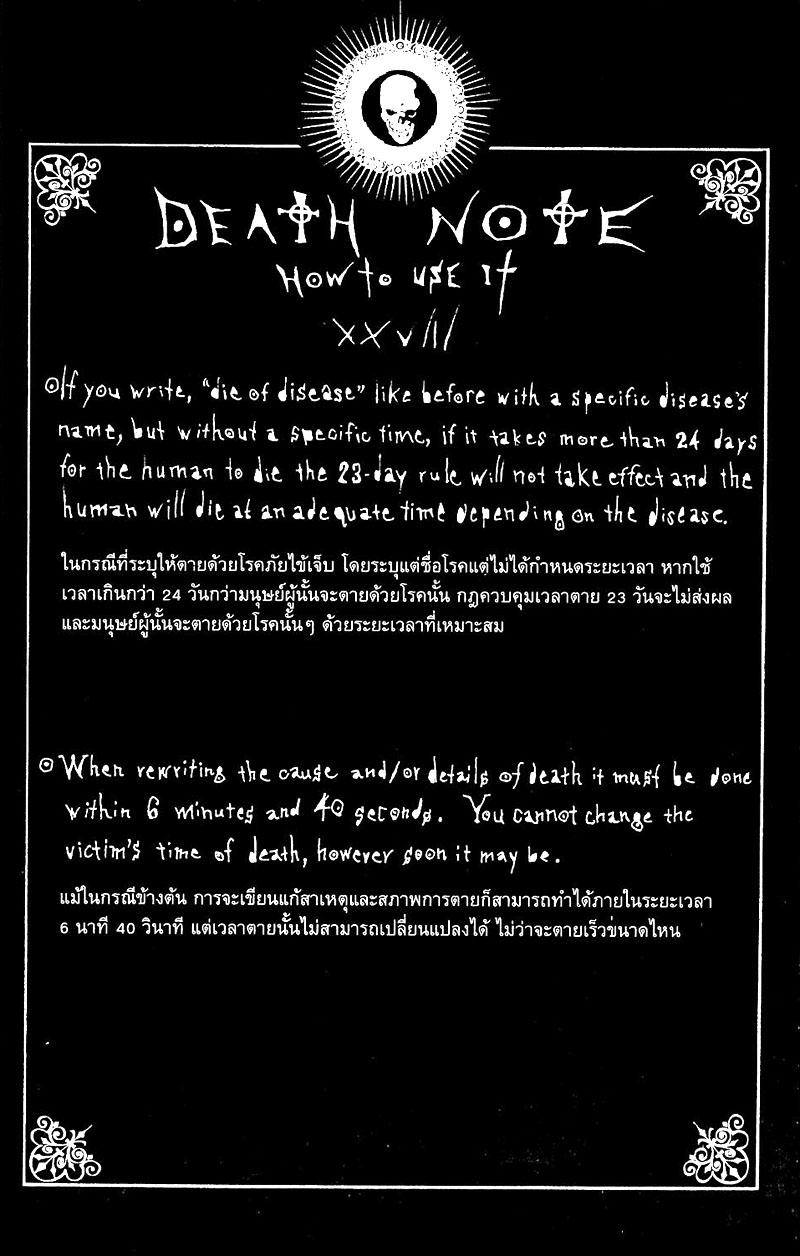 DEATH NOTE
HOW to USE It
XXVIII
If you write, "die of disease" like before with a specific disease's
name, but without a specific time, if it takes more than 24 days
for the human to die the 23-day rule will not take effect and the
human will die at an adequate time depending on the disease.
ในกรณีที่ระบุให้ตายด้วยโรคภัยไข้เจ็บ โดยระบุแต่ชื่อโรคแต่ไม่ได้กำหนดระยะเวลา หากใช้
เวลาเกินกว่า 24 วันกว่ามนุษย์ผู้นั้นจะตายด้วยโรคนั้น กฎควบคุมเวลาตาย 23 วันจะไม่ส่งผล
และมนุษย์ผู้นั้นจะตายด้วยโรคนั้นๆ ด้วยระยะเวลาที่เหมาะสม
When rewriting the cause and/or details of death it must be done
within 6 minutes and 40 seconds. You cannot change the
victim's time of death, however soon it may be.
แม้ในกรณีข้างต้น การจะเขียนแก้สาเหตุและสภาพการตายก็สามารถทำได้ภายในระยะเวลา
6 นาที 40 วินาที แต่เวลาตายนั้นไม่สามารถเปลี่ยนแปลงได้ ไม่ว่าจะตายเร็วขนาดไหน